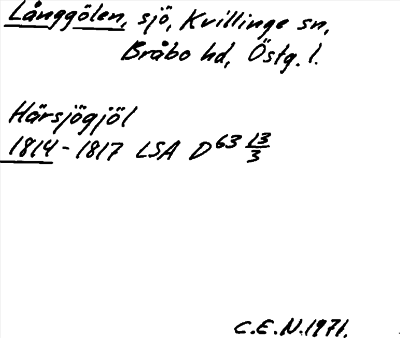 Långgölen, sjö, Kvillinge sn,
Bråbo hd, Östg. l.
Härsjögjöl
1814-1817 LSA D63 13/3
C.E.N.1971.